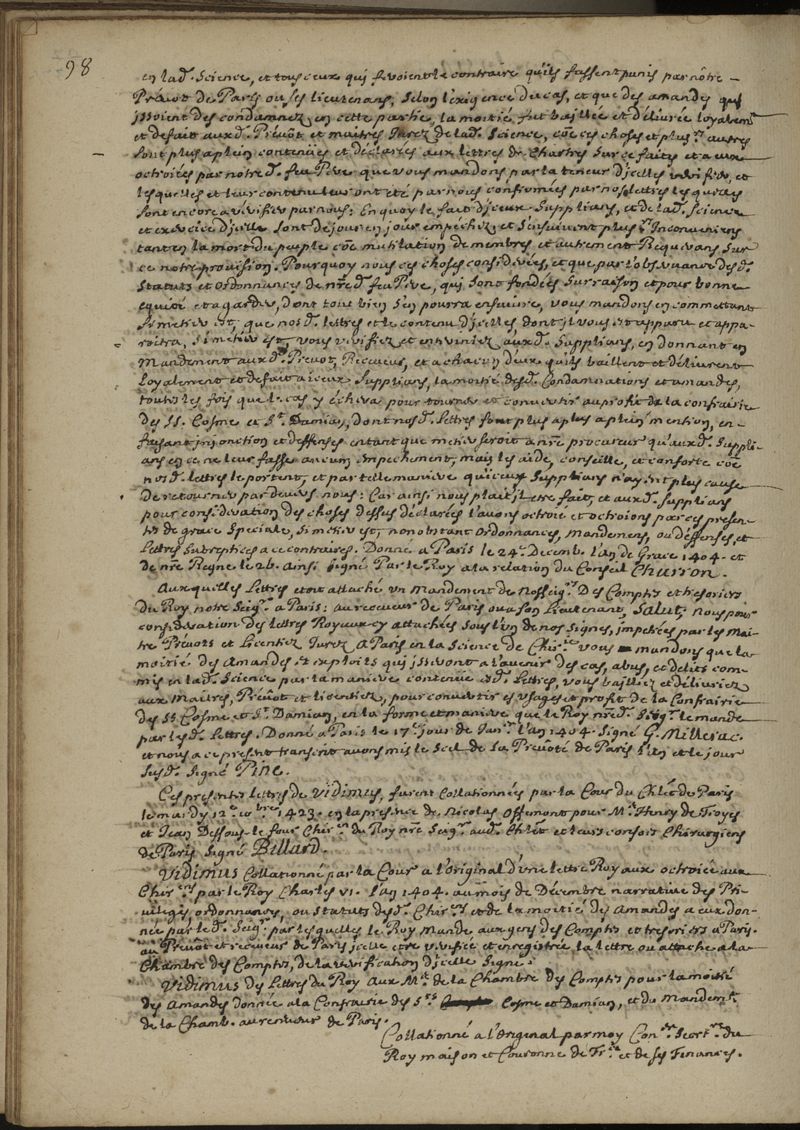 98
en lad. Science, et tous ceux qui feroient le contraire qu'ils fussent punis par nôtre
Prevost de Paris ou ses lieutenans, Selon l'exigence du cas, et que des amandes qui
issoient des condamnez en cette partie, la moitié fut baillée et délivrée loyalemt.
et de fait aux d. Prévôt et maitres Jurez de lad. Science, côe ces choses et plus.rs autres
sont plus a plein contenües et declarées aux lettres de Chartres Sur ce faites et a eux
octroiées par notred. feu Pere que vous mandons par la teneur d'jcelles et
lesquelles et leur contenu leur ont été par nous confirmées par nos lettres lesquelles
sont encore a verifier par nous: En quoy le fait d'jceux Supplians, et de lad. Science
et exercice d'jcelle sont de jour en jour empechez et s'ensuivent plus.rs Inconveniens
tant en la mort du peuple côe mutilation de membres et autrement Requerans Sur
ce notre provision. Pourquoy nous ces choses considerées, et que par l'observance desd.
Statuts et ordonnances de nred. feu Pere, qui sont fondés Sur raison et pour bonne
equité et a garder, dont tout bien s'en pourra ensuivre, vous mandons en commettant
Si metier est, que nosd. lettres et le contenu d'jcelles, dont jl vous est apparu et appa-
roitra, Si metier est, vous verifiez et enteriniez auxd. Supplians, en donnant en
Mandement auxd. Prevot, Receveur, et a chacun d'eux qu'ils baillent et délivrent
Loyalement et de fait a iceux Supplians, la moitié desd. Condamnations et amandes,
toutes les fois que le cas y écherra pour tourner et convertir au profit de la confrairie
des SS. Cosme et St. Damian, dont nosd. Lettres font plus a plein mention, en
faisant jnjonction et deffenses entant que metier seroit a nre procureur qu'auxd. Suppli-
ans en ce ne leur fasse aucun Impechement, mais les aide, conseille, et conforte côe
nosd. lettres le portent, et par telle maniere qu'iceux Supplians n'ayent plus cause
De retourner par devers nous: Car ainsi nous plait jl etre fait, et auxd. supplians
pour consideration des choses dessus declarées l'avons octroié et octroions par ces presen-
tes de grace Speciale, Si metier est, nonobstant ordonnances, mandemens, ou deffenses, et
Lettres Subreptices a ce contraires. Donné a Paris le 24.e Decemb. l'an de Grace 1404. et
de nre Regne le 26. Ainsi signé Par le Roy a la relation du Conseil Charron.
Auxquelles Lettres etoit attaché un Mandement de Nosseig.rs Des Comptes et tresoriers
du Roy notre Seig.r a Paris: au receveur de Paris ou a son Lieutenant, Salut; Nous pour
consideration des lettres Royaux cy attachées sous l'un de nos Signes, impetrées par les Mai-
tre Prevots et Licentiez Jurez A Paris en la Science de Chir.ie vous mandons que la
moitié des Amandes et exploits qui jsseront a l'avenir des cas, abus, et delits com-
mis en lad. Science par la maniere contenue esd. Lettres, vous bailliez et délivriez
aux Maitres, Prévot et licentiez, pour convertir es usages et profit de la Confrairie
des SS Cosme et St. Damian, en la forme et maniere que le Roy nred. Seig.r le mande
par lesd. lettres. Donné a Paris le 17.e jour de Janr. l'an 1404. Signé G. Millerac.
et nous a ce present transcrit avons mis le Scel de La Prevoté de Paris l'an et le jour
susd. Signé Pine.
Ces presentes lettres de Vidimus, furent Collationnées par la Cour du Ch.let de Paris
le mardy 12.e 10.bre 1423. en la presence de Nicolas Offemont pour M.e Henry de Troyes
et Jean Dessous-le four Chir.ns du Roy nre Seig.r aud. Ch.let et leurs consors Chirurgiens
de Paris Signé Billard.
Vidimus Collationné par la Cour a l'original d'une lettre Royaux octroiée aux
Chir.ns par le Roy Charles VI. l'an 1404. au mois de Decembre narrative des Pri-
vileges, ordonnances, ou Statuts desd. Chir.ns et de la moitié des Amandes a eux don-
née par led. Seig.r par lesquelles le Roy Mande aux gens des Comptes et tresoriers a Paris.
au Prevôt et receveur de Paris jcelle etre verifiée et enregistrée la lettre ou attache a la
Chambre des Comptes, de la verification d'jcelle Signé.
Vidimus des Lettres du Roy Aux M.es de la Chambre des Comptes pour la moitié
des Amandes donnée a la Confrairie des S.ts Cosme et Damian, et du Mandem.t
de la Chamb. au receveur de Paris.
Collationné a l'Original par moy Con.er Secret.re du
Roy maison et Couronne de Fr.ce et de ses Finances.